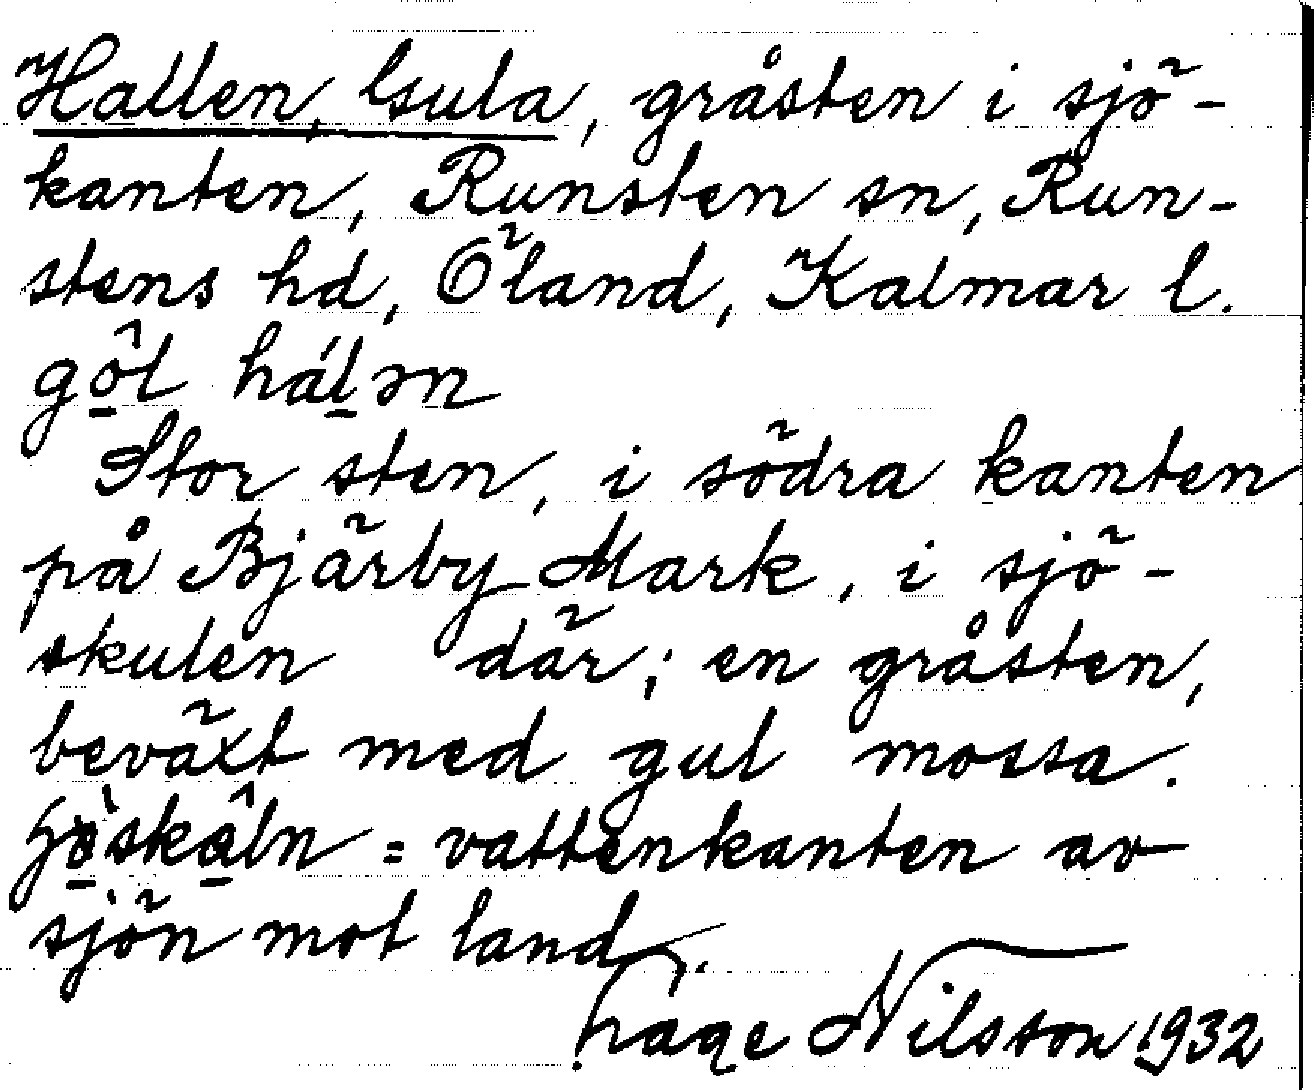 Hallen, Gula, gråsten i sjö-
kanten, Runsten sn, Run-
stens hd, Öland, Kalmar l.
gö̂l hálən
Stor sten, i södra kanten
på Bjärby Mark, i sjö-
skulen där; en gråsten,
beväxt med gul mossa.
= vattenkanten av
sjön mot land.
Nilsson 1932